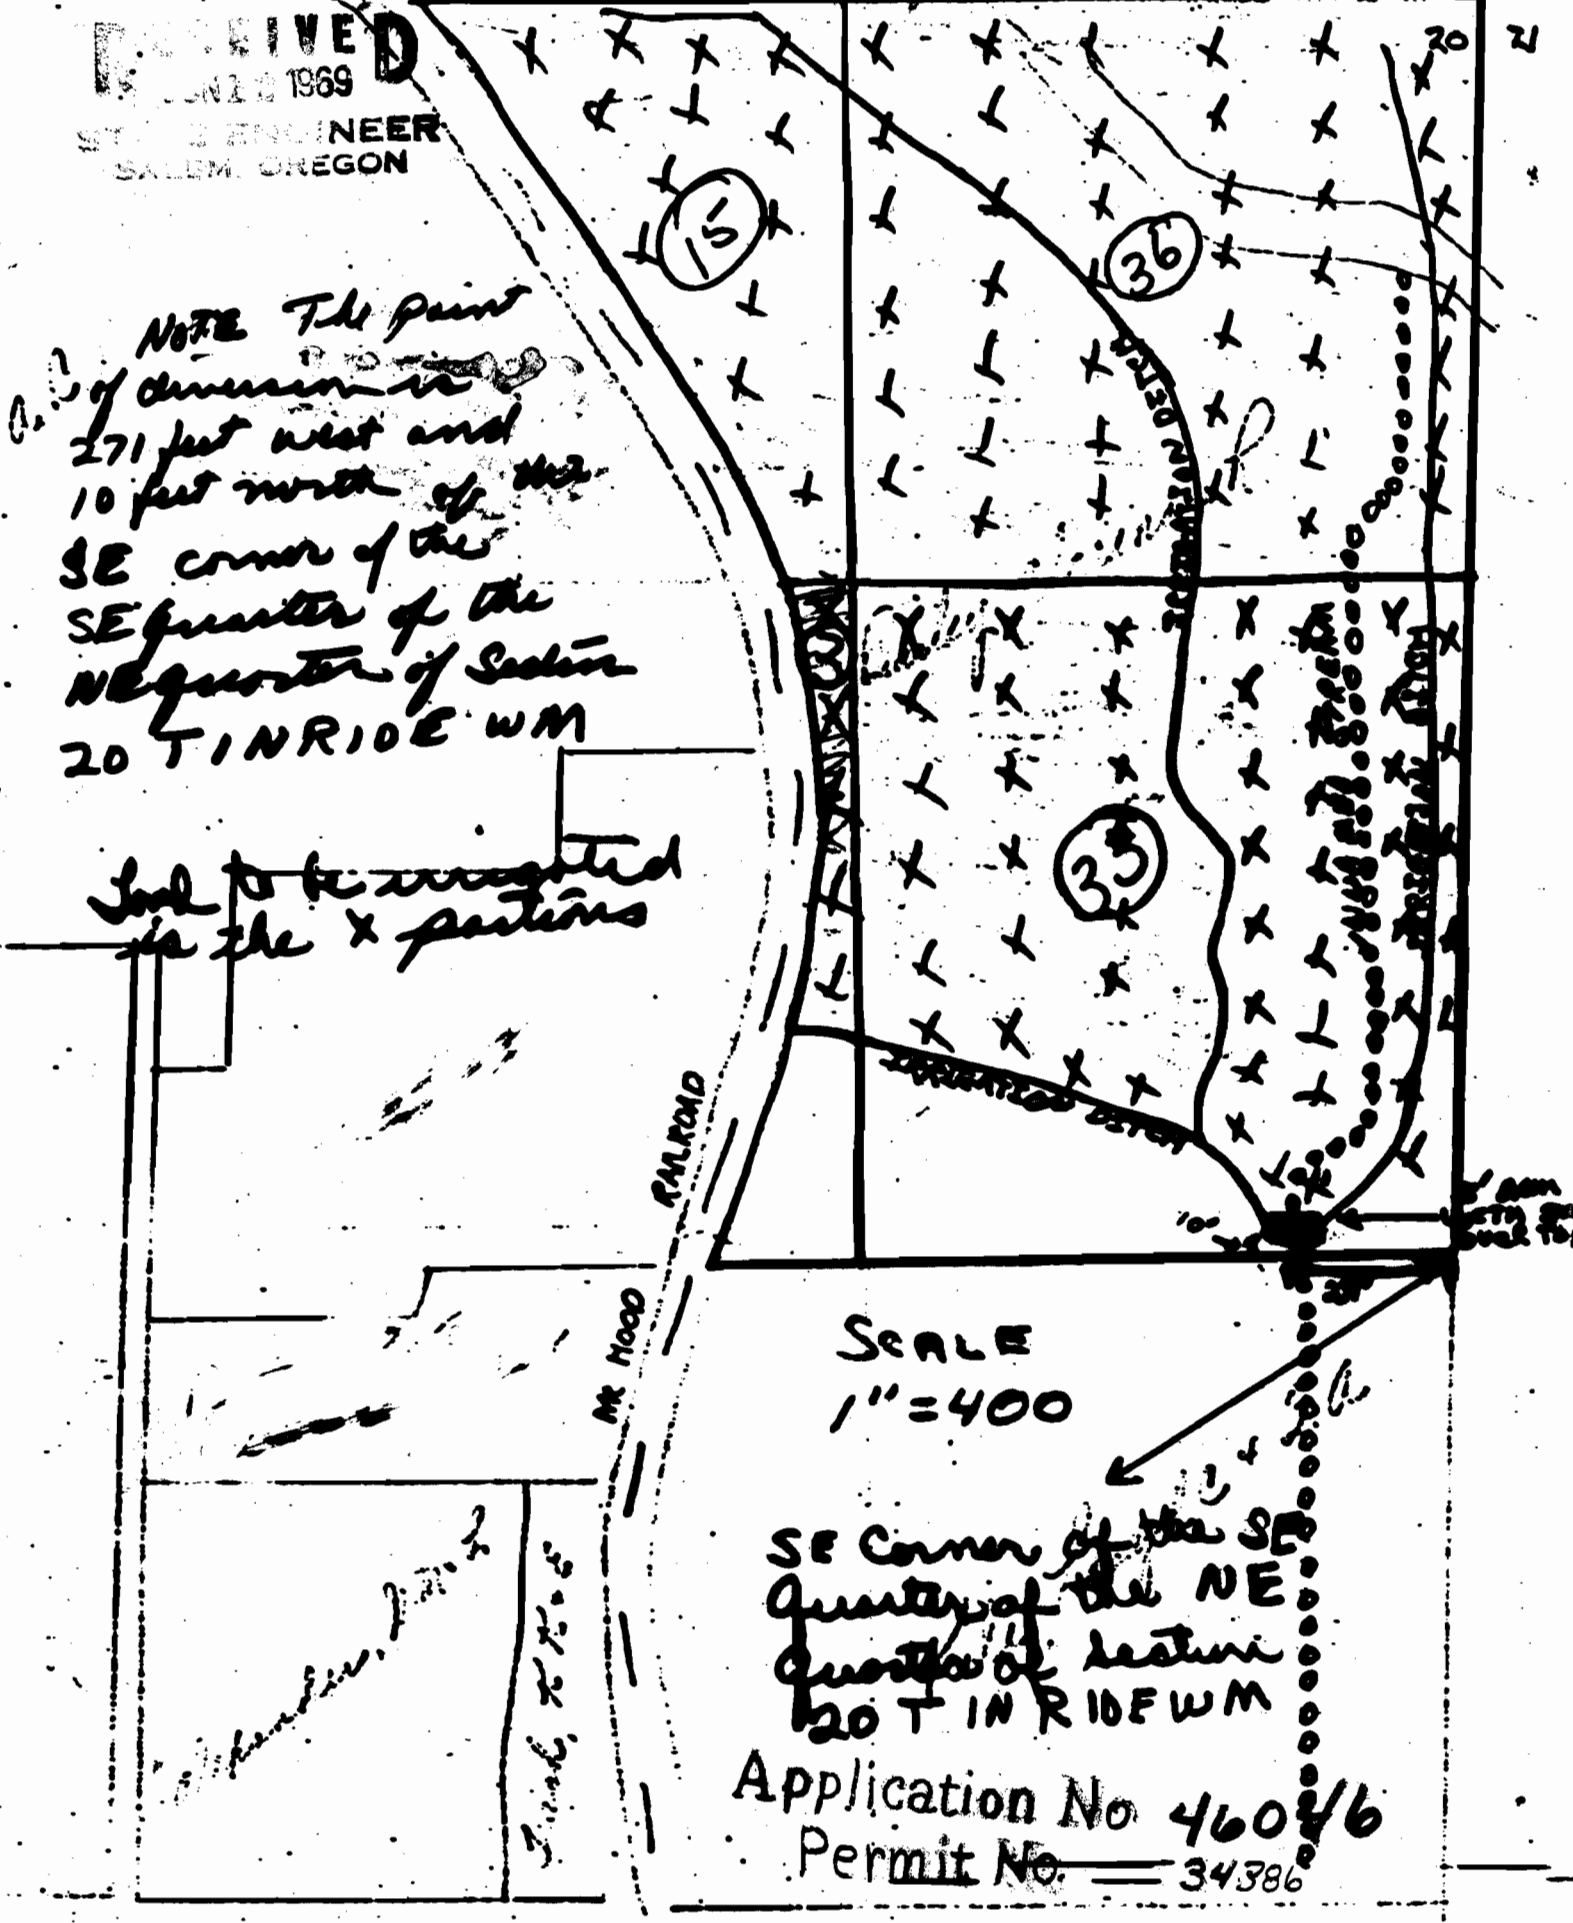 RECEIVED
1969
STATE ENGINEER
SALEM, OREGON
20 21
15
36
NOTE The point
of diversion is
271 feet west and
10 feet north of the
SE corner of the
SE quarter of the
NE quarter of Section
20 T 1N R 10 E WM
Land to be irrigated
is the X portions
IRRIGATION DITCH
3
33
IRRIGATION DITCH
IRRIGATION DITCH
MT HOOD RAILROAD
10'
271'
SCALE
1" = 400
SE Corner of the SE
Quarter of the NE
Quarter of Section
20 T 1N R 10 E WM
Application No 46046
Permit No. 34386